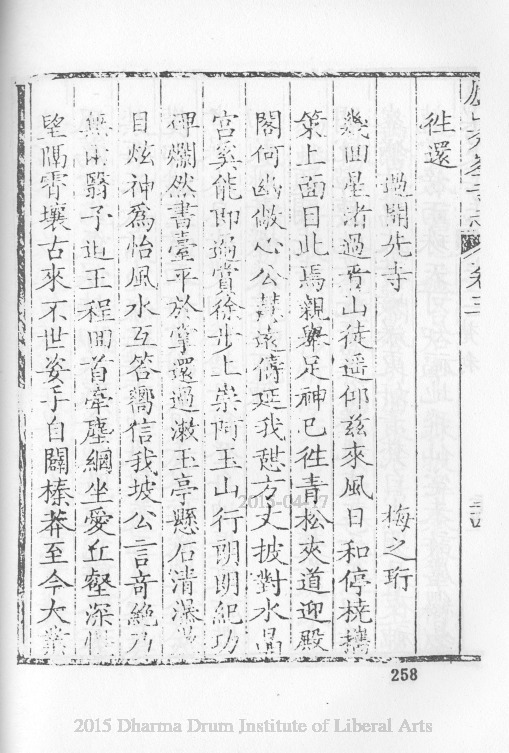 卷三
往還
過開先寺 梅之珩
幾回星渚過 山徒遥仰兹來風日和停橈攜
策上面目此焉親舉足神已往青松夾道迎殿
閣何幽敞心公 遠儔延我憇方丈披對水晶
宮奚能即過賞徐步上崇阿玉山行朗朗紀功
碑爛然書臺平於掌還過漱玉亭懸石清瀑
目炫神爲怡風水互答嚮信我坡公言奇絶乃
無兩翳予迫王程回首牽塵網坐愛丘壑深
望隔霄壤古來不世姿手自闢榛莽至今大業
258
2015-04-17
2015 Dharma Drum Institute of Liberal Arts